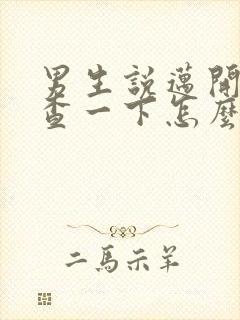 男生說邁開
查一下怎麼
二馬示羊